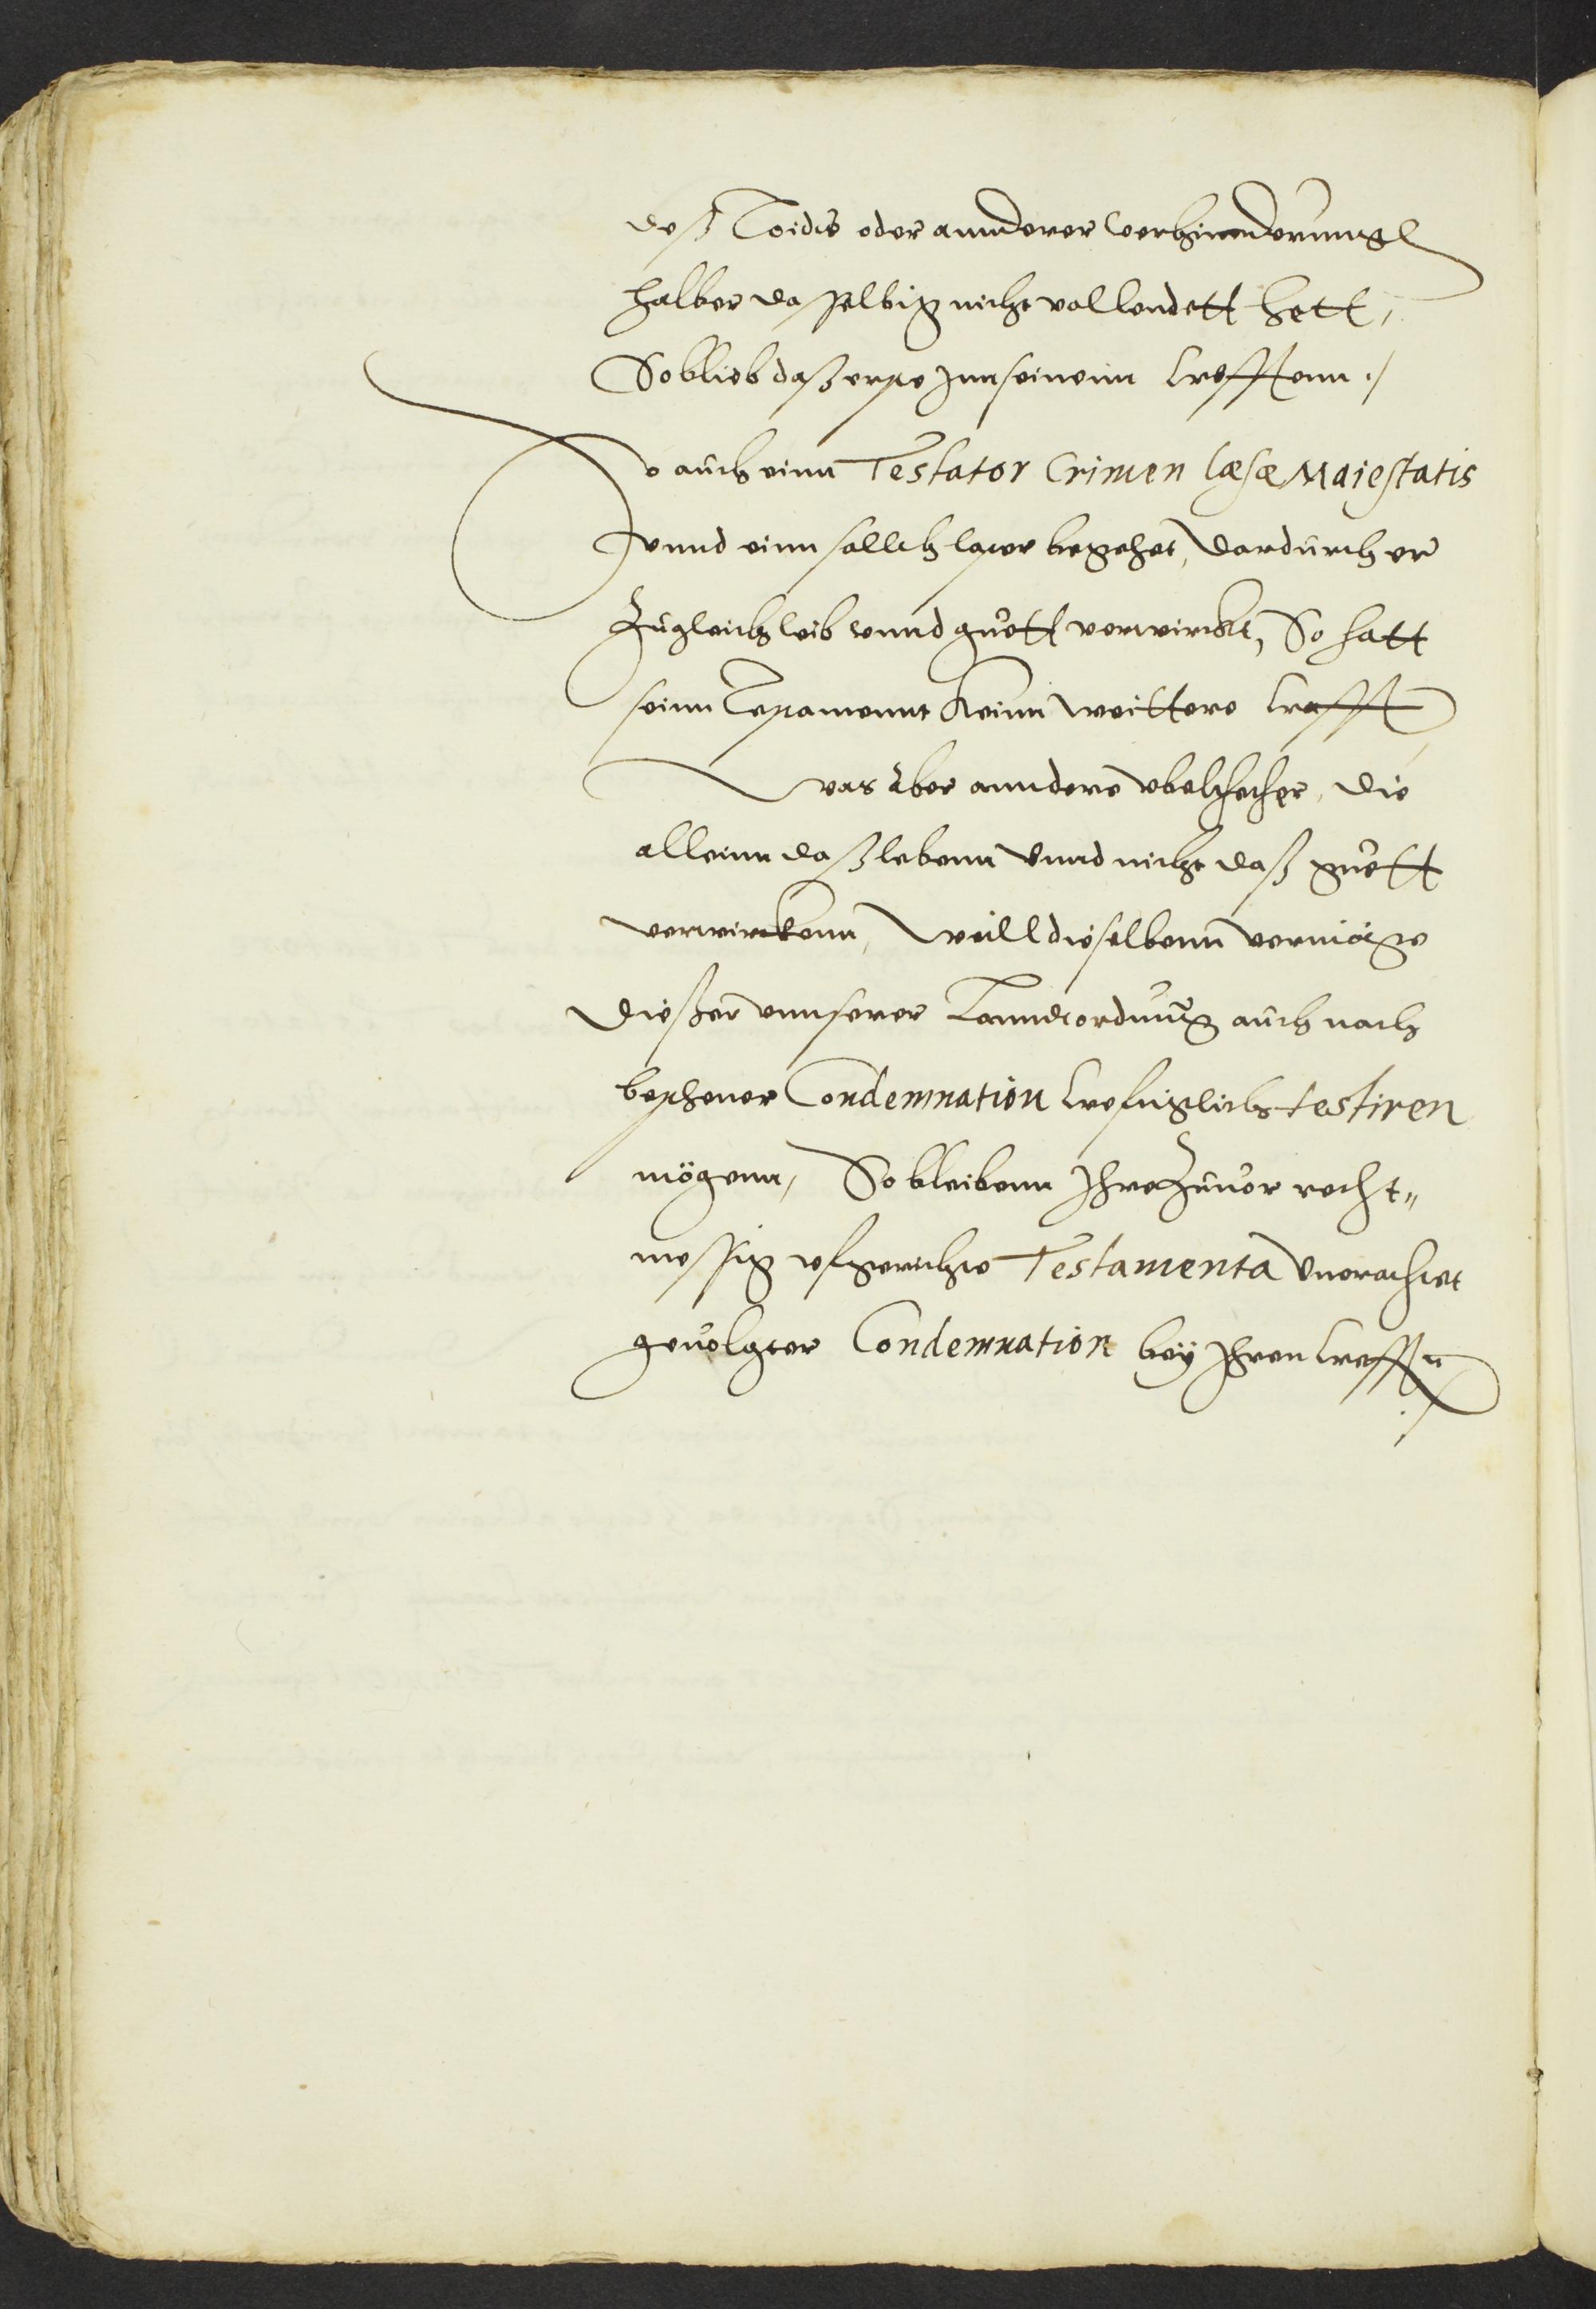 deß Toids oder annderer verhinnderunng
halber dasselbig nicht vollendett hett,
So blieb daß erste Inn seinenn Crefftenn ./
Wo auch einn Testator Crimen læsæ Maiestatis
vnnd einn sollch laster begehet, dardurch er
Zugleich leib vnnd guett verwirckt, So hatt
seinn Testamennt Keinn weittere Crafft
Was Aber anndere vbelthether, die
alleinn daß lebenn Vnnd nicht daß guett
verwirckenn, Weill dieselbenn vermöge
dießer vnnserer Lanndtordnung auch nach
beschener Condemnation Crefftiglich testiren
mögenn, So bleibenn Ihre Zuuor recht„
messig vfgerichte Testamenta Vnerachtet
geuolgter Condemnation bey Ihren Crefften